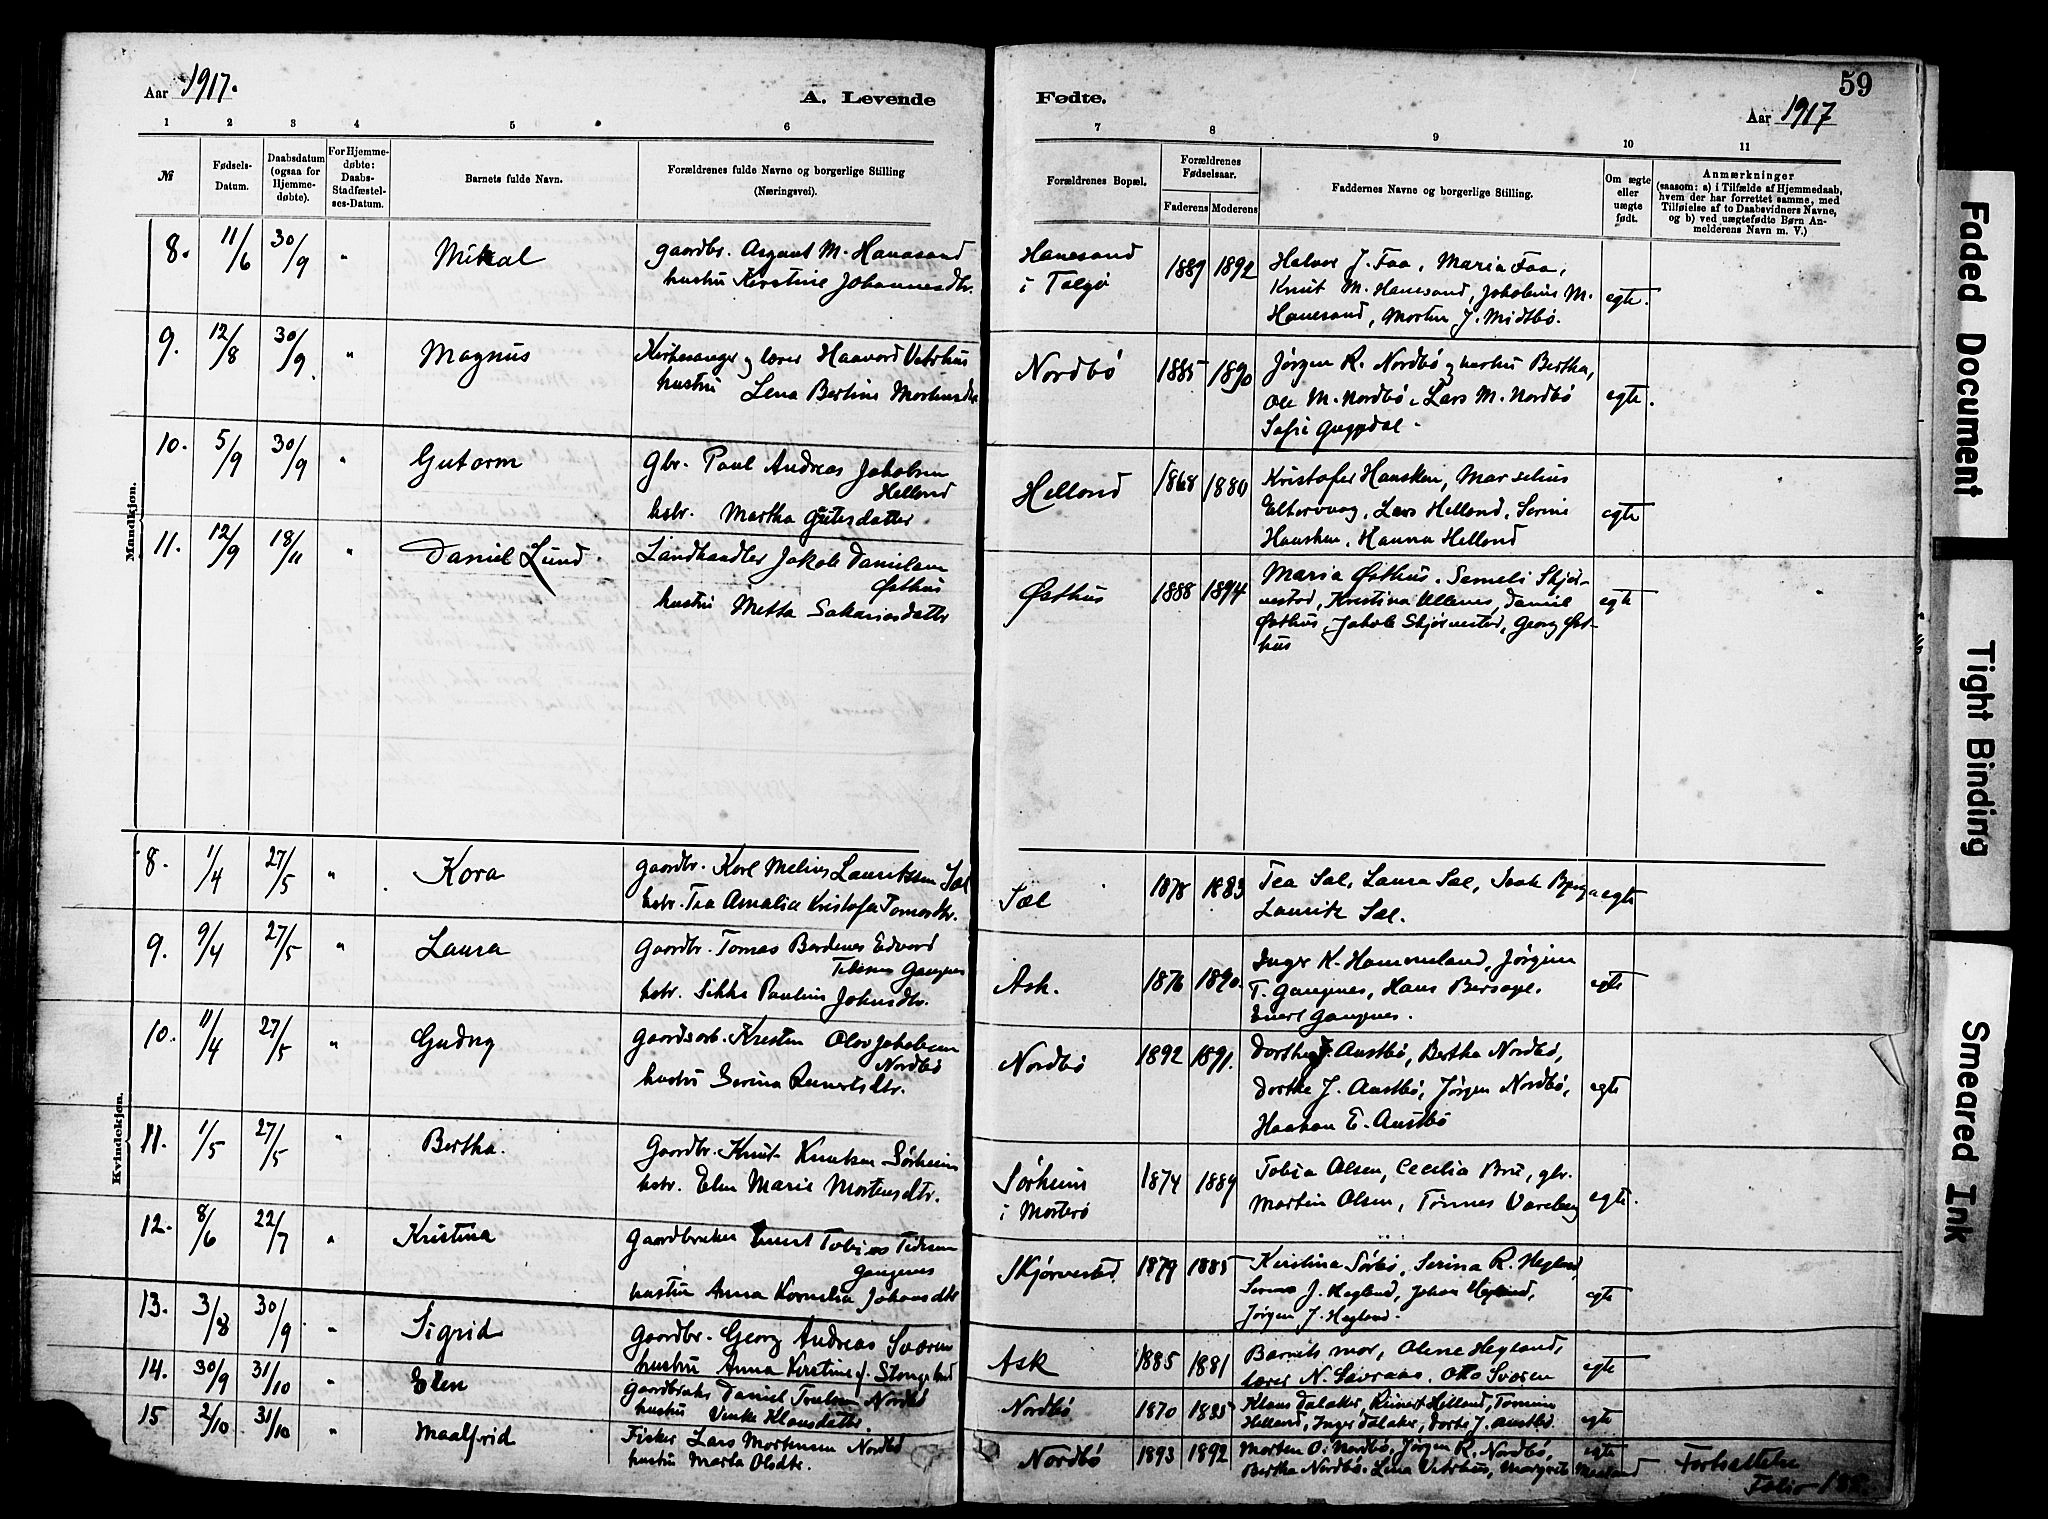 59
Aar 1917.
A. Levende
Fødte.
Aar 1917
1 2 3 4 5 6 7 8 9 10 11
№
Fødsels-
Datum.
Daabsdatum
(ogsaa for
Hjemme-
døbte).
For Hjemme-
døbte:
Daabs-
Stadfæstel-
ses-Datum.
Barnets fulde Navn.
Forældrenes fulde Navne og borgerlige Stilling
(Næringsvei).
Forældrenes Bopæl.
Forældrenes
Fødselsaar.
Faderens Moderens
Faddernes Navne og borgerlige Stilling.
Om ægte
eller
uægte
født.
Anmærkninger
(saasom: a) i Tilfælde af Hjemmedaab,
hvem der har forrettet samme, med
Tilføielse af to Daabsvidners Navne,
og b) ved uægtefødte Børn An-
melderens Navn m. V.)
Mandkjøn.
8. 11/6 30/9 " Mikal
gaardbr. Asgaut M. Hanasand
hustru Kirstine Johannesdtr.
Hanesand
i Talgø
1889 1892
Halvor J. Faa, Maria Faa,
Knut M. Hanesand, Jakobine M.
Hanesand, Morten J. Midtbø.
egte.
9. 12/8 30/9. " Magnus
Kirkesanger og lærer Haavard Vetrhus
hustru Lena Bertine Mortensdtr
Nordbø
1885 1890
Jørgen R. Nordbø og hustru Bertha,
Ole M. Nordbø, Lars M. Nordbø
Sofie
egte.
10. 5/9 30/9 " Gutorm
Gbr. Paul Andreas Jakobsen
Helland
hstr. Martha
Helland
1868 1880
Kristofer Hausken, Marselius
Eltarvaag, Lars Helland, Serine
Hausken, Hanna Helland
egte
11. 12/9 18/11 " Daniel Lund
Landhandler Jakob Danielsen
Østhus
hustru Metta Sakariasdatter
Østhus
1888 1894
Maria Østhus, Sameli Skjør-
nestad, Kristina Ullenes, Daniel
Østhus, Jakob Skjørnestad, Georg Øst-
hus
egte
Kvindekjøn.
8. 1/4 27/5 " Kora
gaardbr. Karl Melius Lauritssen Sæl
hstr. Tea Amalia Kristofa Tomasdtr.
Sæl
1878 1883
Tea Sæl, Laura Sæl, Isak
Lauritz Sæl.
egte
9. 9/4 27/5 " Laura
Gaardbr. Tomas Bardenes Edvard
Tidenes Gangenes
hstr. Sikke Pauline Johnsdtr.
Ask.
1876 1890.
Inger K. Hammeland, Jørgine
T. Gangenes, Hans Bersagel.
Gangenes.
egte
10. 11/4 27/5 " Gudny
gaardsarb. Kresten Olav Jakobsen
Nordbø
hustru Serina Reinertsdtr.
Nordbø
1892 1891.
Dorthea J. Austbø, Bertha Nordbø,
Dorthe J. Austbø, Jørgen Nordbø,
Haakon E. Austbø
egte
11. 1/5 27/5 " Bertha.
Gaardbr. Knut Knutsen Sørheim
hstr. Elen Marie Mortensdtr.
Sørheim
i Mosterø
1874 1889
Tobia Olsen, Cecilia Bru, gbr.
Martin Olsen, Tønnes Vareberg
egte.
12. 8/6 22/7 " Kristina
Gaardbruker Knut Tobias Tidesen
Gangenes
hustru Anna Kornelia Johansdtr
Skjørnestad
1879 1885
Kirstina Sørbø, Serina R. Hegland,
J. Hegland, Johan Hegland,
Jørgen J. Hegland.
egte
13. 3/8 30/9 " Sigrid
Gaardbr. Georg Andreas Svaren
hustru Anna Kirstine f. Stangeland
Ask
1885 1881
Barnets mor, Oline Hegland,
lærer N. Otto Svaren
egte
14. 30/9 31/10 " Elen
Gaardbruker Daniel Nordbø
hustru Venke Klausdatter
Nordbø
1870 1885
Klaus Dalaker, Reinert Helland, Tomine
Helland, Inger Dalaker, Dorte J. Austbø.
egte
15 2/10 31/10 " Maalfrid
Fisker Lars Mortensen Nordbø
hustru Marta Olsdtr.
Nordbø
1893 1892
Morten O. Nordbø, Jørgen R. Nordbø,
Bertha Nordbø, Lena Vetrhus, Margrete
egte
Fortsættelse
Folio
Faded Document
Tight Binding
Smeared Ink